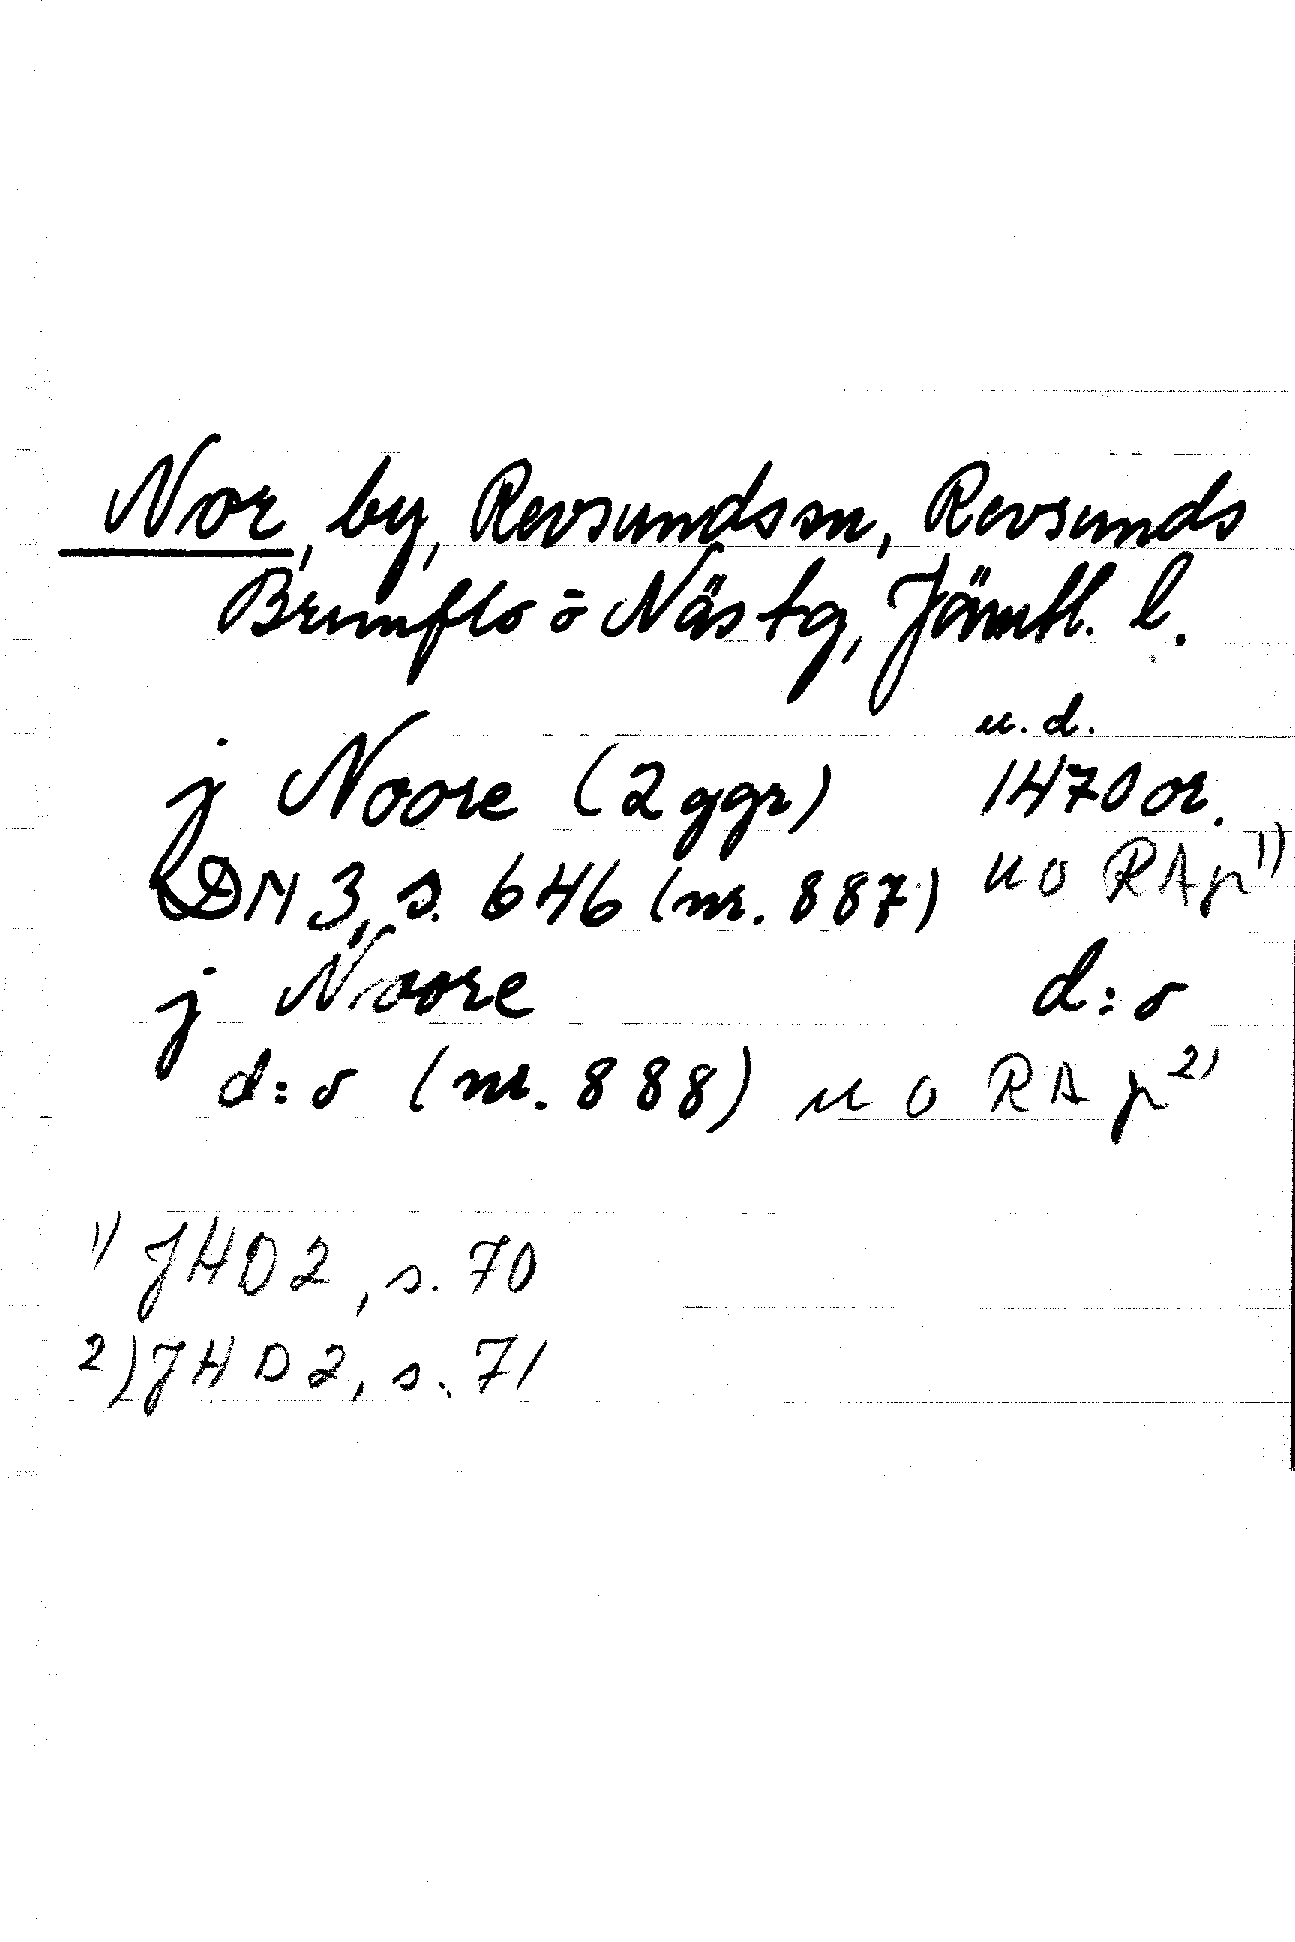 Nor, by, Revsunds sn, Revsunds
Brunflo o Näs tg, Jämtl. l.
u. d.
j Noore (2 ggr) 1470 or.
DN 3, s. 646 (nr. 887) u o RAp 1)
j Noore d:o
d:o (nr. 888) u o RAp 2)
1) JHD 2, s. 70
2) JHD 2, s. 71